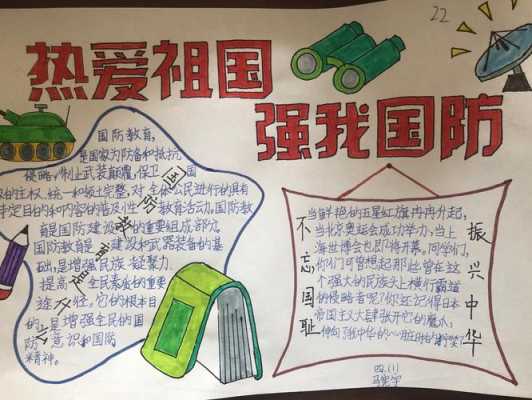 22
热爱祖国
强我国防
国防教育,
是国家为防备和抵抗
侵略,制止武装颠覆,保卫国
的主权、统一和领土完整,对全体公民进行的具有
特定目的和内容的普及性教育活动。国防教
育是国防建设的重要组成部分,
国防教育是建设和武器装备的基
础,是增强民族凝聚力
提高全民素质的重要
途径。它的根本目
的是增强全民的国
防意识和国防
精神。
国防教育
不忘国耻
当鲜艳的五星红旗冉冉升起,
当北京奥运会成功举办,当上
海世博会也即将开幕,同学们,
你们可曾想起那些曾在这
个强大的民族头上横行霸道
的侵略者呢?你还记得日本
帝国主义大肆张开它的魔爪,
伸向我中华的
振兴中华
四.(1)